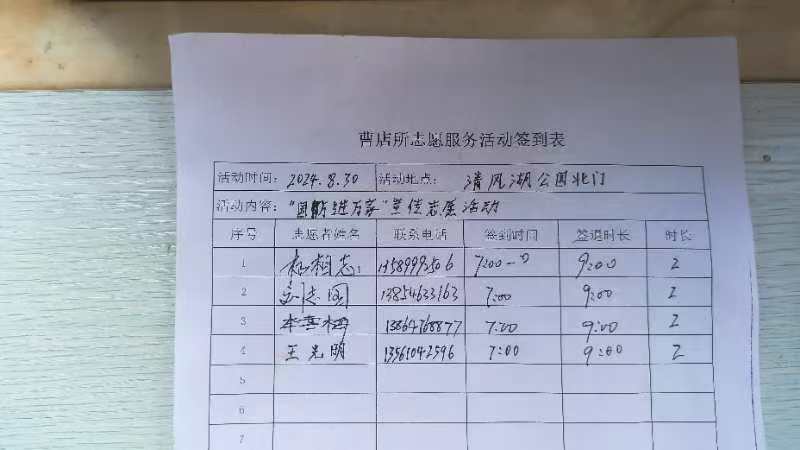 曹店所志愿服务活动签到表
活动时间: 2024.8.30 活动地点: 清风湖公园北门
活动内容: "国防进万家"宣传志愿活动
序号 志愿者姓名 联系电话 签到时间 签退时长 时长
1 杨相志 13589992506 7:00 9:00 2
2 刘志国 13854633163 7:00 9:00 2
3 13864768877 7:00 9:00 2
4 王光明 13561042596 7:00 9:00 2
5
6
7